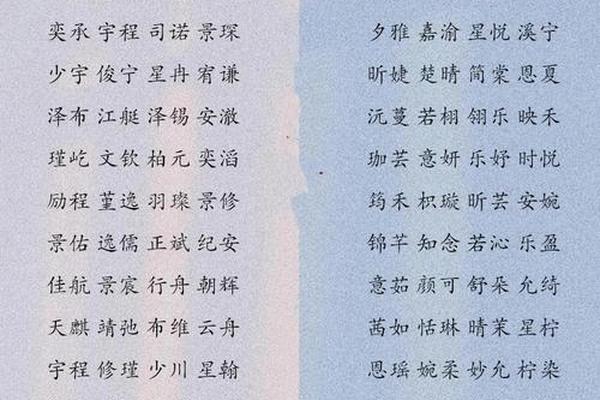 奕承 宇程 司诺 景琛
少宇 俊宁 星冉 宥谦
泽布 江艇 泽锡 安澈
瑾屹 文钦 柏元 奕滔
励程 堇逸 羽璨 景修
景佑 逸儒 正斌 纪安
佳航 景宸 行舟 朝辉
天麒 靖弛 布维 云舟
宇程 修瑾 少川 星翰
夕雅 嘉渝 星悦 溪宁
昕婕 楚晴 简棠 恩夏
沅蔓 若栩 翎乐 映禾
珈芸 意妍 乐妤 时悦
筠禾 枳璇 昕芸 安婉
锦芊 知念 若沁 乐盈
意茹 颜可 舒朵 允绮
茜如 恬琳 晴茉 星柠
恩瑶 婉柔 妙允 柠染